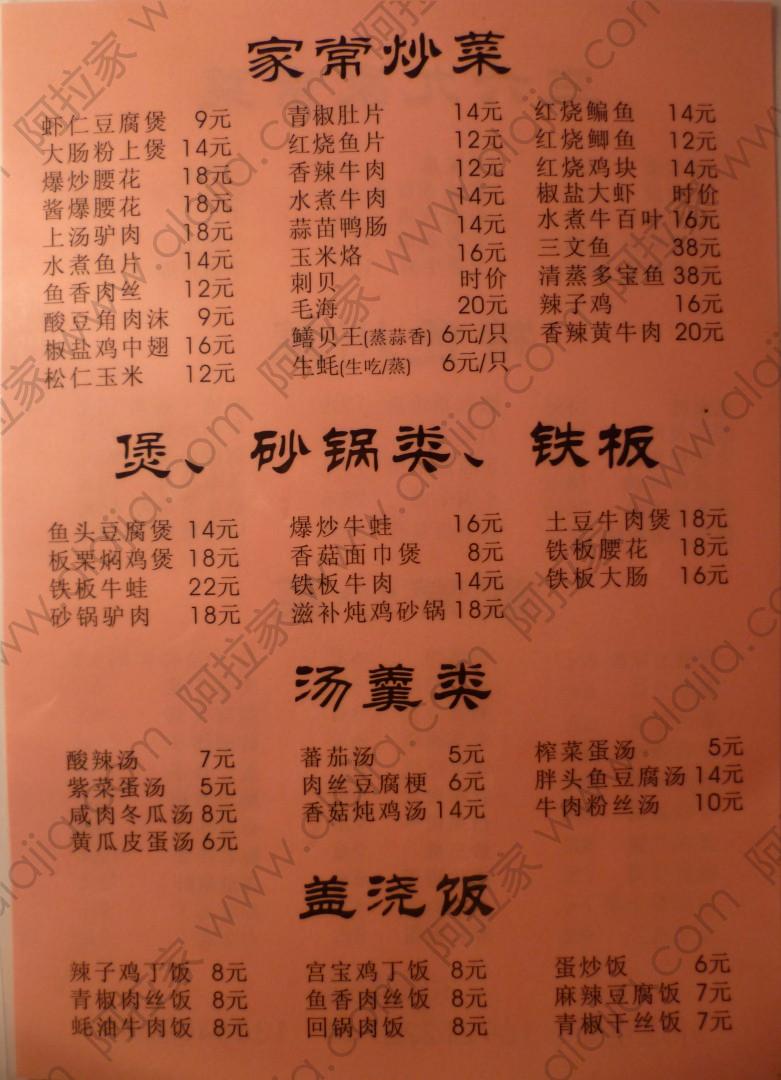 家常炒菜
虾仁豆腐煲 9元
大肠粉上煲 14元
爆炒腰花 18元
酱爆腰花 18元
上汤驴肉 18元
水煮鱼片 14元
鱼香肉丝 12元
酸豆角肉沫 9元
椒盐鸡中翅 16元
松仁玉米 12元
青椒肚片 14元
红烧鱼片 12元
香辣牛肉 12元
水煮牛肉 14元
蒜苗鸭肠 14元
玉米烙 16元
刺贝 时价
毛海 20元
鳝贝王(蒸蒜香) 6元/只
生蚝(生吃/蒸) 6元/只
红烧鳊鱼 14元
红烧鲫鱼 12元
红烧鸡块 14元
椒盐大虾 时价
水煮牛百叶 16元
三文鱼 38元
清蒸多宝鱼 38元
辣子鸡 16元
香辣黄牛肉 20元
煲、砂锅类、铁板
鱼头豆腐煲 14元
板栗焖鸡煲 18元
铁板牛蛙 22元
砂锅驴肉 18元
爆炒牛蛙 16元
香菇面巾煲 8元
铁板牛肉 14元
滋补炖鸡砂锅 18元
土豆牛肉煲 18元
铁板腰花 18元
铁板大肠 16元
汤羹类
酸辣汤 7元
紫菜蛋汤 5元
咸肉冬瓜汤 8元
黄瓜皮蛋汤 6元
蕃茄汤 5元
肉丝豆腐梗 6元
香菇炖鸡汤 14元
榨菜蛋汤 5元
胖头鱼豆腐汤 14元
牛肉粉丝汤 10元
盖浇饭
辣子鸡丁饭 8元
青椒肉丝饭 8元
蚝油牛肉饭 8元
宫宝鸡丁饭 8元
鱼香肉丝饭 8元
回锅肉饭 8元
蛋炒饭 6元
麻辣豆腐饭 7元
青椒干丝饭 7元
阿拉家 www.alajia.com